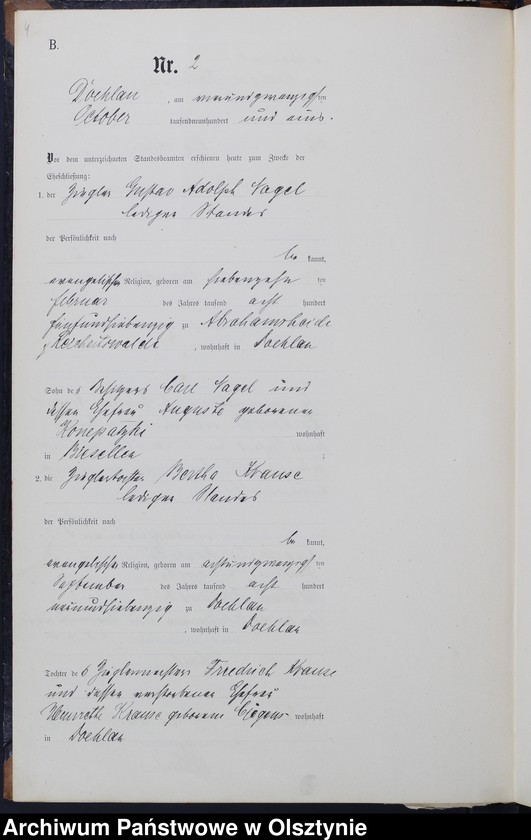 4
B.
Nr. 2
Doehlau, am neunundzwanzigsten
October tausendneunhundert und eins.
Vor dem unterzeichneten Standesbeamten erschienen heute zum Zwecke der
Eheschließung:
1. der Ziegler Gustav Adolph Nagel
lediger Standes
der Persönlichkeit nach
be kannt,
evangelischer Religion, geboren am siebenzehnten
Februar des Jahres tausend acht hundert
fünfundsiebenzig zu Abrahamsheide
, wohnhaft in Doehlau
Sohn des Besitzers Carl Nagel und
dessen Ehefrau Auguste geborenen
wohnhaft
in Biesellen;
2. die Zieglertochter Bertha Krause
lediger Standes
der Persönlichkeit nach
be kannt,
evangelischer Religion, geboren am achtundzwanzigsten
September des Jahres tausend acht hundert
neunundsiebenzig zu Doehlau
, wohnhaft in Doehlau
Tochter des Zieglermeisters Friedrich Krause
und dessen verstorbenen Ehefrau
Krause geborene wohnhaft
in Doehlau
Archiwum Państwowe w Olsztynie